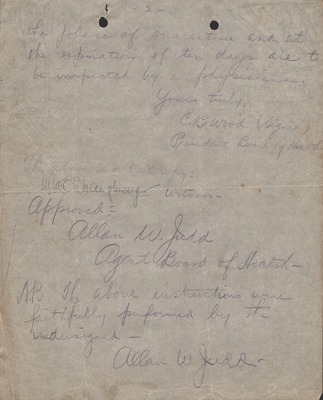 - 2 -
the place of quarantine and at
the expiration of ten days are to
be inspected by a physician.
Yours truly,
C.B. Wood (Signed)
President Board of Health
Witness
Approved =
Allan W. Judd
Agent Board of Health -
N.B. The above instructions were
faithfully performed by the
undersigned -
Allan W. Judd -